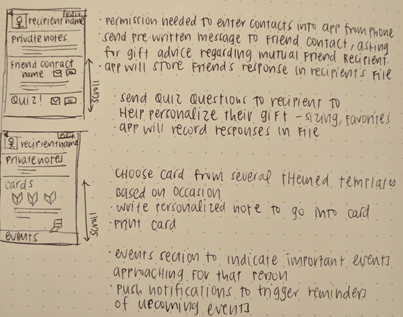 edit
recipient name
Private notes
Friend contact
name
QUIZ!
scroll
· permission needed to enter contacts into app from phone
· send pre-written message to Friend contact, asking
for gift advice regarding mutual friend Recipient.
· app will store friend's response in recipient's file
· send Quiz Questions to recipient to
Help personalize their gift - sizing, favorites
· app will record responses in file
edit
recipient name
Private notes
cards
events
scroll
· choose card from several themed templates
based on occasion
· write personalized note to go into card
· print card
· events section to indicate important events
approaching for that person
· push notifications to trigger reminders
of upcoming events